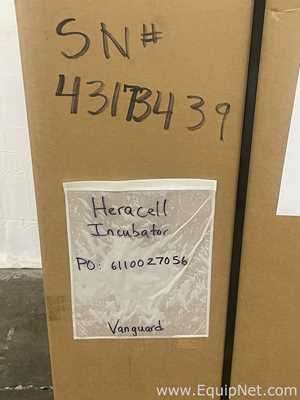 SN#
43173439
Heracell
Incubator
PO: 6110027056
Vanguard
www.EquipNet.com